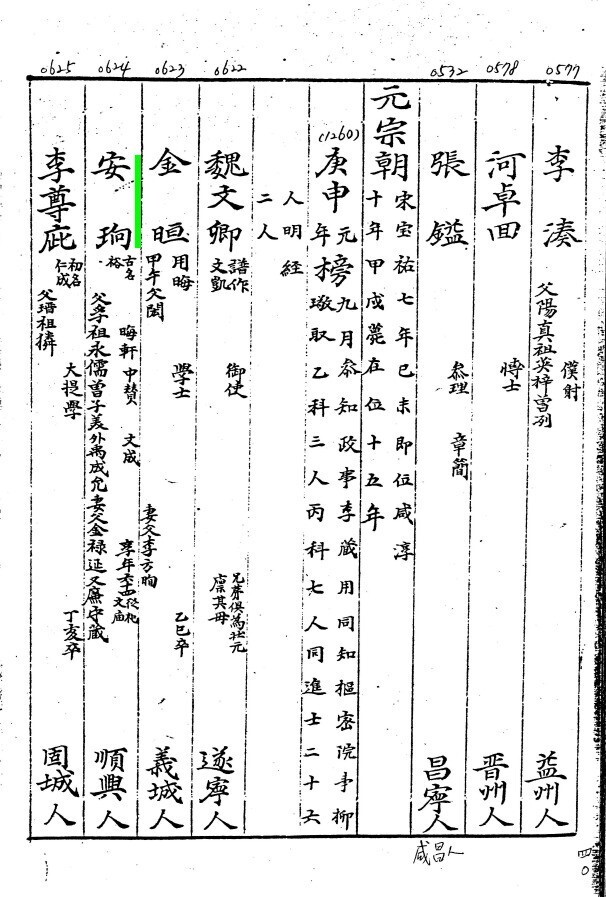 0577
李湊
僕射
父陽真祖英梓曾冽
益州人
0578
河卓回
博士
晋州人
0532
張鎰
叅理 章簡
昌寧人
咸昌人
元宗朝
宋宝祐七年己未即位咸淳
十年甲戌薨在位十五年
(1260)
庚申
年元
榜九月叅知政事李蔵用同知樞密院事柳
璥取乙科三人丙科七人同進士二十六
人明経
二人
0622
魏文卿
譜作
文凱
御使
兄弟俱為壮元
廩其母
遂寧人
0623
金晅
用晦
甲午欠闰
學士
妻父李方昫
乙巳卒
義城人
0624
安珦
古名
裕
晦軒 中賛 文成
享年六十四
從祀
文庙
父孚祖永儒曾子美外禹成允妻父金禄延又廉守蔵
順興人
0625
李尊庇
初名
仁成
父瑨祖璘
大提學
丁亥卒
固城人
四〇